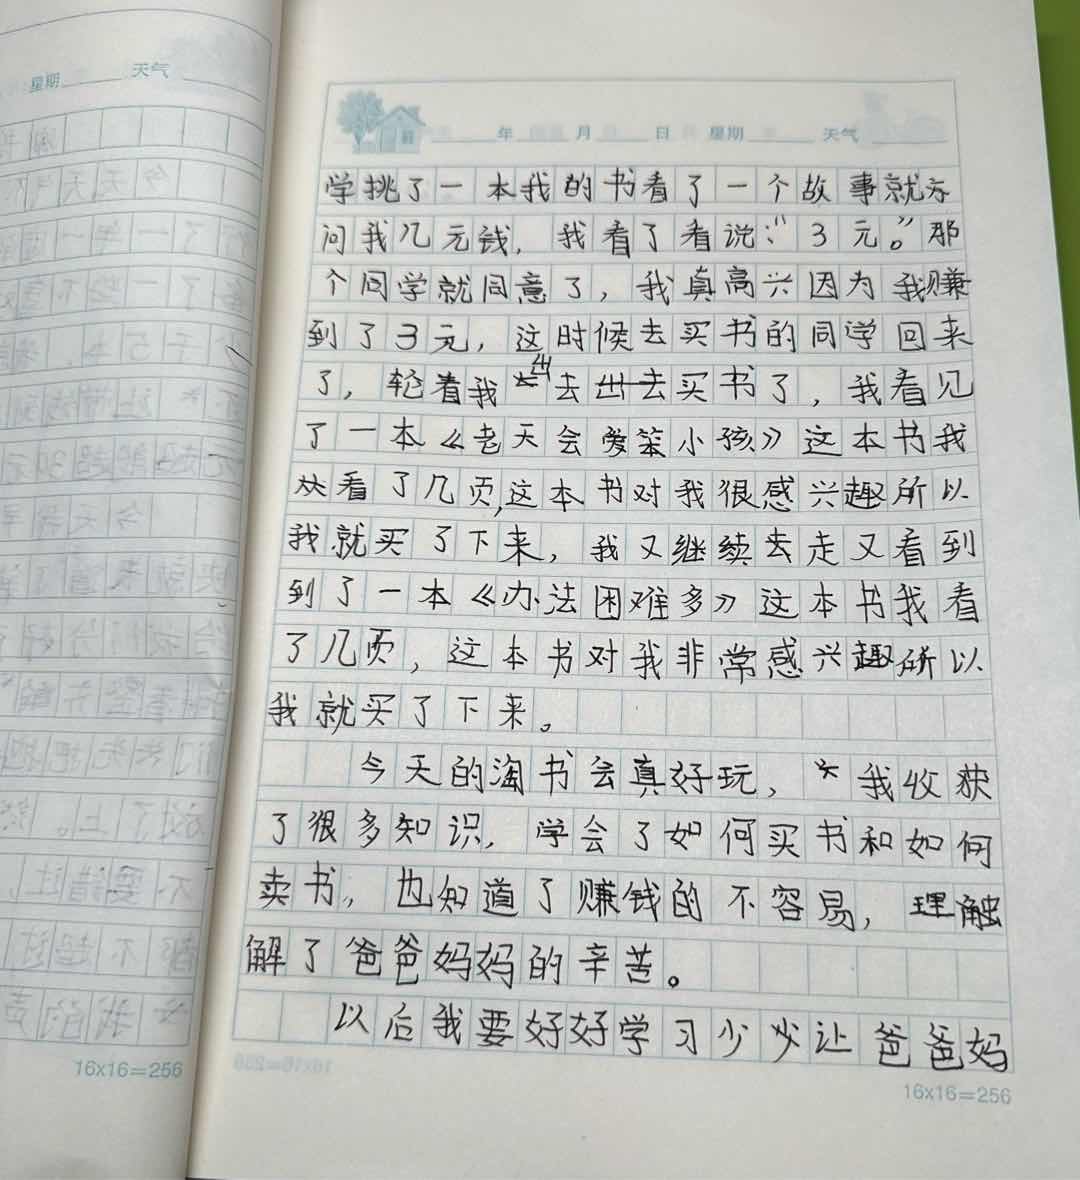 星期 天气
16x16=256
年 月 日 星期 天气
学挑了一本我的书看了一个故事就
问我几元钱，我看了看说：“3元。”那
个同学就同意了，我真高兴因为我赚
到了3元，这时候去买书的同学回来
了，轮着我出去买书了，我看见
了一本《老天会爱笨小孩》这本书我
看了几页，这本书对我很感兴趣所以
我就买了下来，我又继续去走又看到
到了一本《办法困难多》这本书我看
了几页，这本书对我非常感兴趣所以
我就买了下来。
今天的淘书会真好玩，我收获
了很多知识，学会了如何买书和如何
卖书，也知道了赚钱的不容易，理触
解了爸爸妈妈的辛苦。
以后我要好好学习少少让爸爸妈
16x16=256